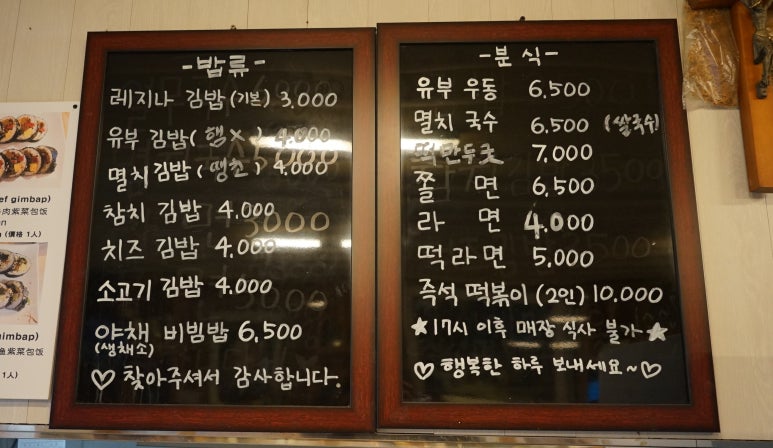 - 밥류 -
레지나 김밥 (기본) 3,000
유부 김밥 (햄 X) 4.000
멸치 김밥 (땡초) 4.000
참치 김밥 4.000
치즈 김밥 4.000
소고기 김밥 4.000
야채 비빔밥 6,500
(생채소)
♡ 찾아주셔서 감사합니다.
- 분식 -
유부 우동 6,500
멸치 국수 6,500 (쌀국수)
떡만두국 7,000
쫄 면 6,500
라 면 4.000
떡라면 5,000
즉석 떡볶이 (2인) 10.000
★ 17시 이후 매장 식사 불가 ★
♡ 행복한 하루 보내세요~ ♡
ef gimbap)
牛肉紫菜包饭
(價格 1人)
gimbap)
紫菜包饭
1人)